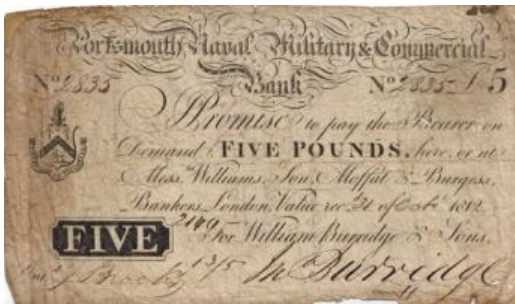 Portsmouth Naval Military & Commercial
Bank
No 2835 No 2835 5
I Promise to pay the Bearer on
Demand FIVE POUNDS, here, or at
Mess.rs Williams, Son, Moffat & Burgess,
Bankers, London, Value rec.d 31 of Oct. 1812
For William Burridge & Sons.
FIVE
Burridge